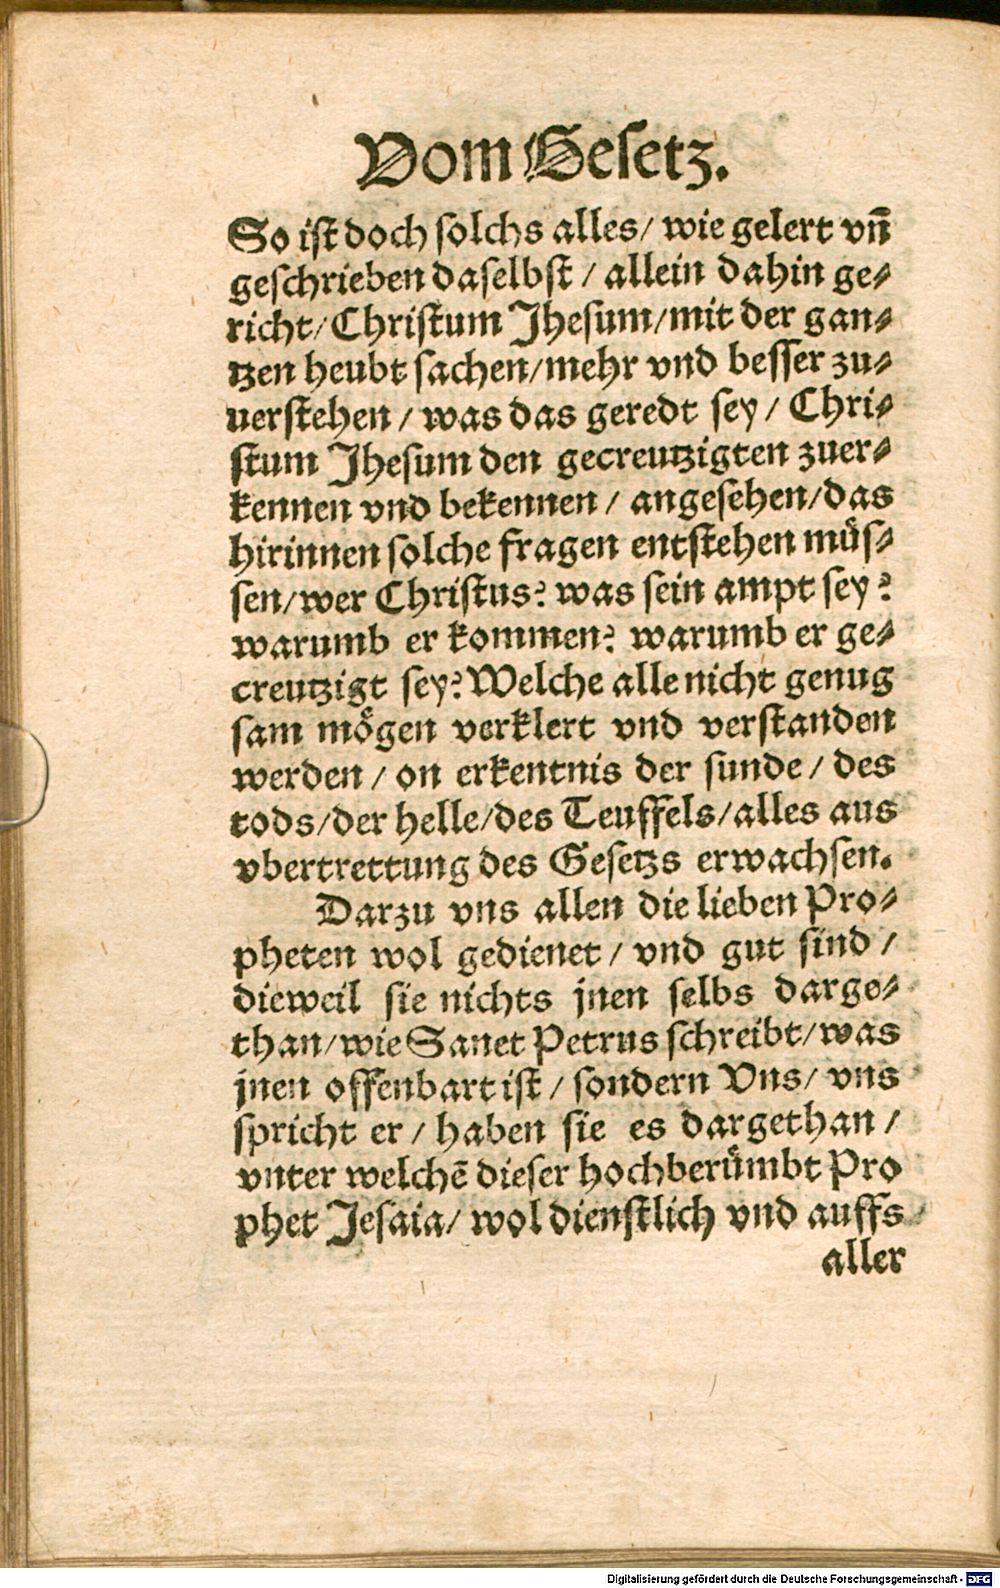 Vom Gesetz.
So ist doch solchs alles/ wie gelert vñ
geschrieben daselbst / allein dahin ge⸗
richt/ Christum Jhesum/mit der gan⸗
tzen heubt sachen/mehr vnd besser zu⸗
uerstehen / was das geredt sey / Chri⸗
stum Jhesum den gecreutzigten zuer⸗
kennen vnd bekennen / angesehen/das
hirinnen solche fragen entstehen müs⸗
sen/wer Christus? was sein ampt sey?
warumb er kommen? warumb er ge⸗
creutzigt sey? Welche alle nicht genug
sam mögen verklert vnd verstanden
werden / on erkentnis der sunde / des
tods/der helle/des Teuffels/alles aus
vbertrettung des Gesetzs erwachsen.
Darzu vns allen die lieben Pro⸗
pheten wol gedienet / vnd gut sind /
dieweil sie nichts jnen selbs darge⸗
than/wie Sanct Petrus schreibt/was
jnen offenbart ist / sondern Vns/ vns
spricht er / haben sie es dargethan /
vnter welchē dieser hochberümbt Pro
phet Jesaia/ wol dienstlich vnd auffs
aller
Digitalisierung gefördert durch die Deutsche Forschungsgemeinschaft - DFG